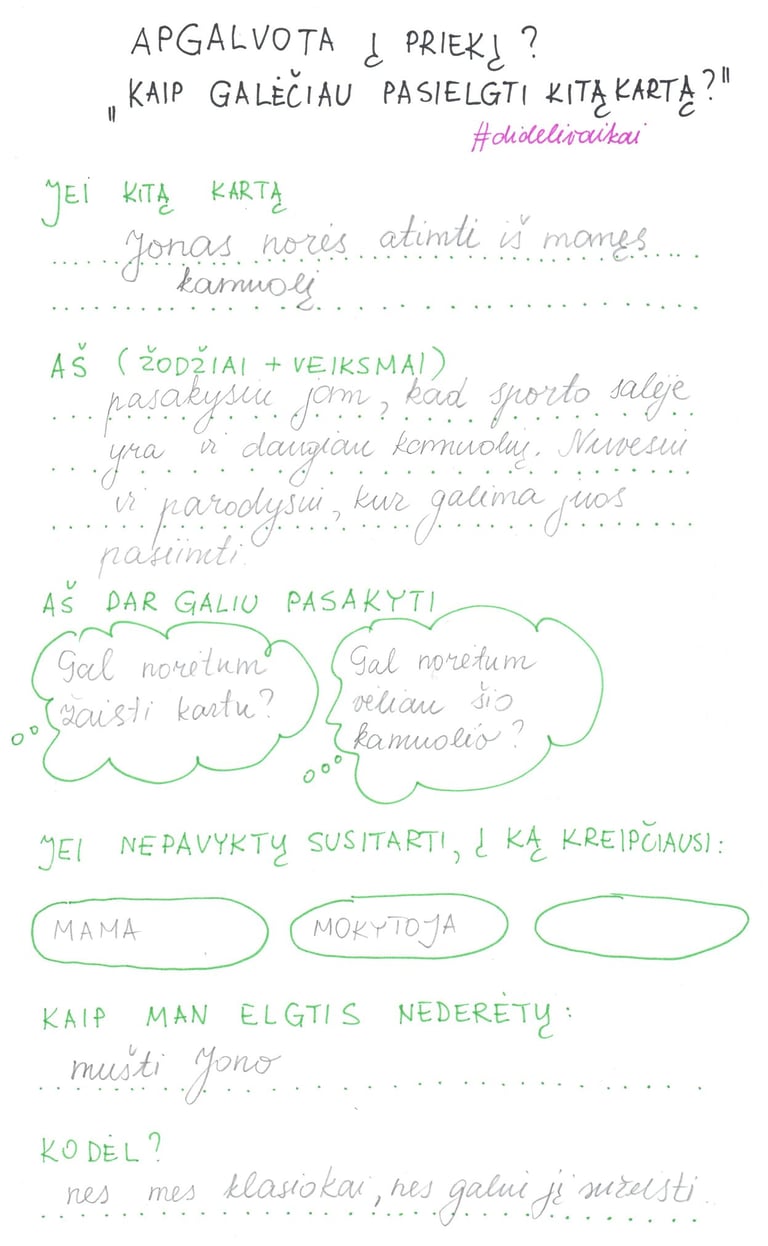 APGALVOTA Į PRIEKĮ?
„KAIP GALĖČIAU PASIELGTI KITĄ KARTĄ?"
#didelivaikai
JEI KITĄ KARTĄ
Jonas norės atimti iš manęs
kamuolį
AŠ (ŽODŽIAI + VEIKSMAI)
pasakysiu jam, kad sporto salėje
yra ir daugiau kamuolių. Nuvesiu
ir parodysiu, kur galima juos
pasiimti.
AŠ DAR GALIU PASAKYTI
Gal norėtum
žaisti kartu?
Gal norėtum
vėliau šio
kamuolio?
JEI NEPAVYKTŲ SUSITARTI, Į KĄ KREIPČIAUSI:
MAMA
MOKYTOJA
KAIP MAN ELGTIS NEDERĖTŲ:
mušti Jono
KODĖL?
nes mes klasiokai, nes galiu jį sužeisti.